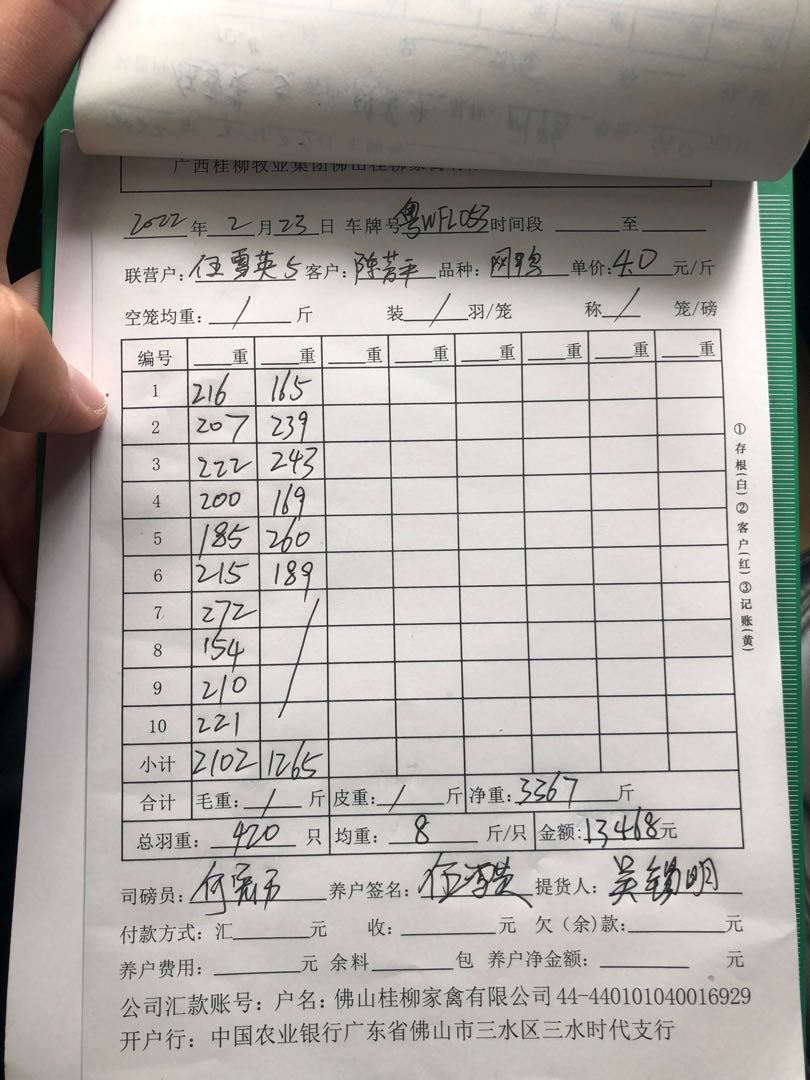 广西桂柳牧业集团佛山桂柳家禽有
2022 年 2 月 23 日 车牌号 粤WFL053 时间段 ______ 至 ______
联营户: 任雪英5 客户: 陈芳平 品种: 网鸭 单价: 4.0 元/斤
空笼均重: / 斤 装 / 羽/笼 称 / 笼/磅
编号 ___重 ___重 ___重 ___重 ___重 ___重 ___重 ___重
1 216 165
2 207 239
3 222 243
4 200 169
5 185 260
6 215 189
7 272
8 154
9 210
10 221
小计 2102 1265
合计 毛重: / 斤 皮重: / 斤 净重: 3367 斤
总羽重: 420 只 均重: 8 斤/只 金额: 13468元
司磅员: 养户签名: 提货人: 吴锡明
付款方式: 汇______元 收: ______元 欠（余）款: ______元
养户费用: ______元 余料______包 养户净金额: ______元
公司汇款账号: 户名: 佛山桂柳家禽有限公司 44-440101040016929
开户行: 中国农业银行广东省佛山市三水区三水时代支行
①存根(白)②客户(红)③记账(黄)